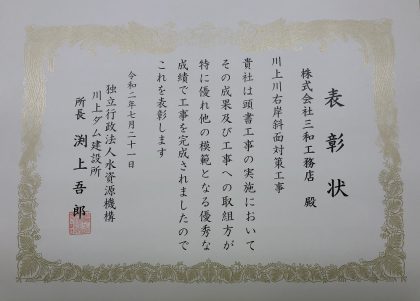 表彰状
株式会社三和工務店 殿
川上川右岸斜面対策工事
貴社は頭書工事の実施において
その成果及び工事への取組方が
特に優れ他の模範となる優秀な
成績で工事を完成されましたので
これを表彰します
令和二年七月二十一日
独立行政法人水資源機構
川上ダム建設所
所長 渕上吾郎